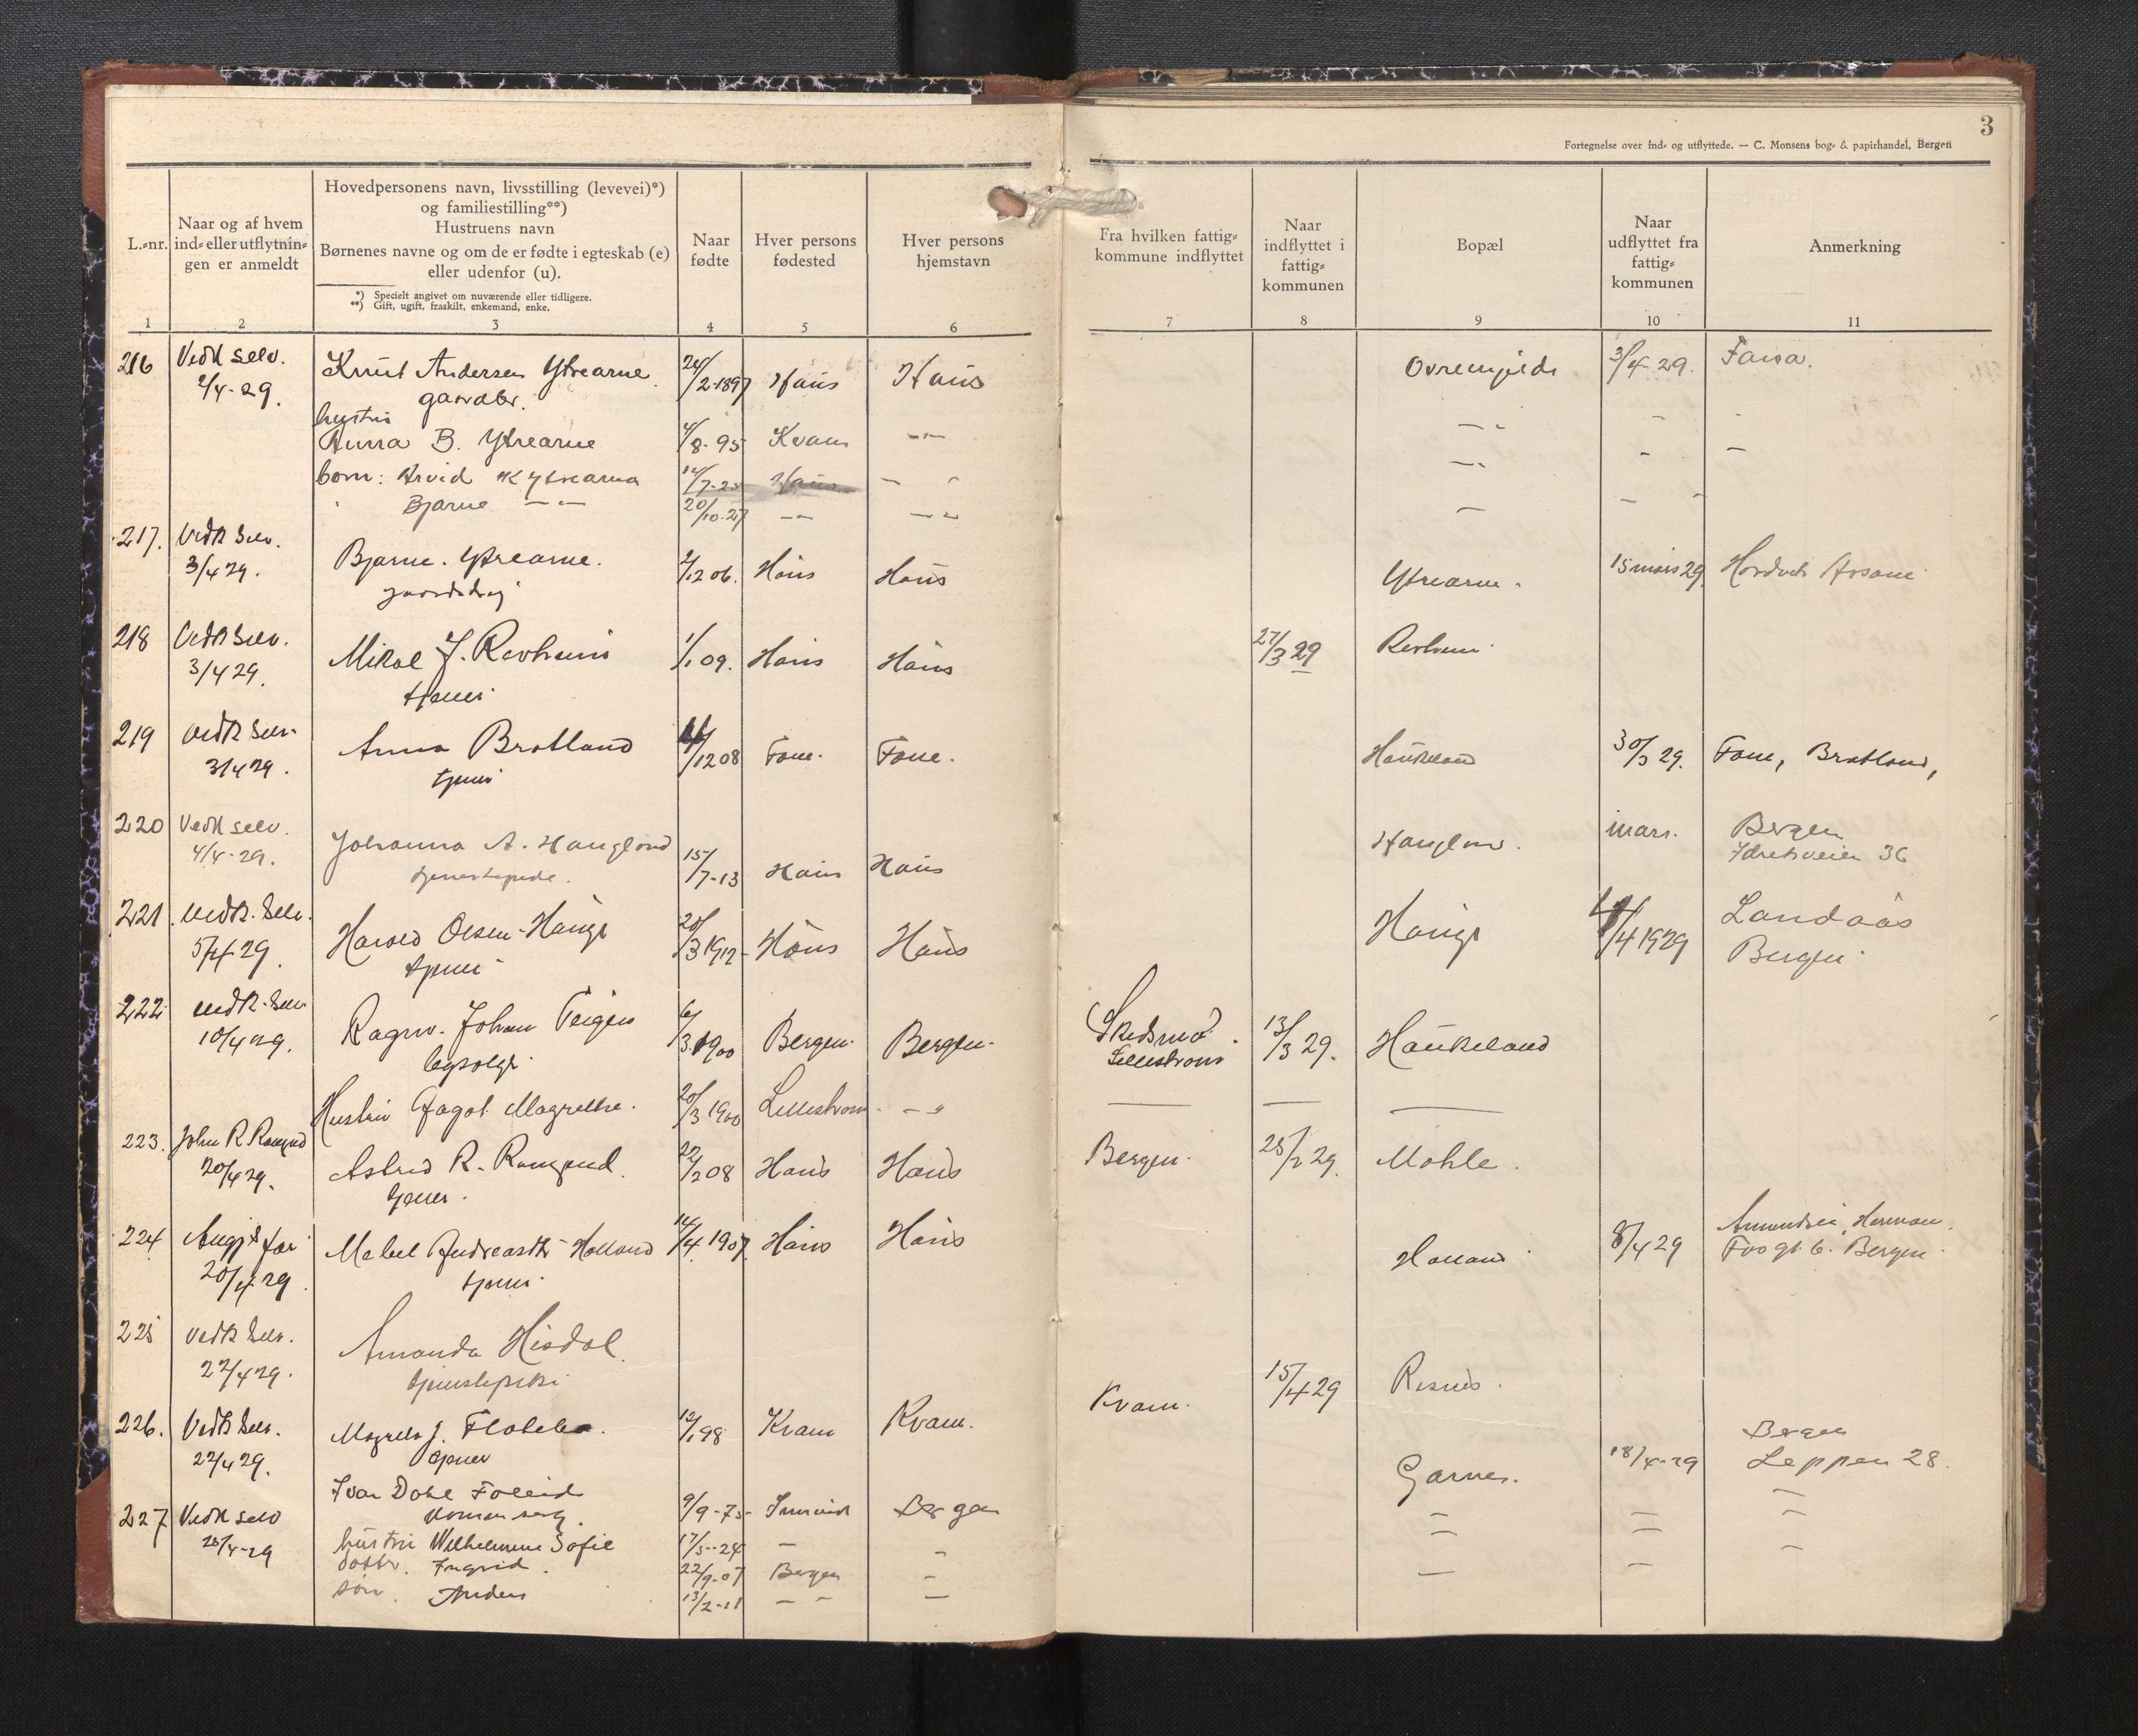 3
Fortegnelse over ind- og utflyttede. — C. Monsens bog- & papirhandel, Bergen
L.-nr.
Naar og af hvem
ind- eller utflytnin-
gen er anmeldt
Hovedpersonens navn, livsstilling (levevei)*)
og familiestilling**)
Hustruens navn
Børnenes navne og om de er fødte i egteskab (e)
eller udenfor (u).
*) Specielt angivet om nuværende eller tidligere.
**) Gift, ugift, fraskilt, enkemand, enke.
Naar
fødte
Hver persons
fødested
Hver persons
hjemstavn
Fra hvilken fattig-
kommune indflyttet
Naar
indflyttet i
fattig-
kommunen
Bopæl
Naar
udflyttet fra
fattig-
kommunen
Anmerkning
1 2 3 4 5 6 7 8 9 10 11
216 Vedk selv. Knut Andersen Ytrearne 2/2-1897 Haus Haus 3/4-29. Fana.
2/4-29. gardbr.
hustru
Anna B. Ytrearne 4/8-95 Kvam —"—
born: Arvid K Ytrearne 14/7-25 Haus — "
" Bjarne —"— 20/10-27 —"— —"—
217. Vedk selv. Bjarne Ytrearne. 2/12 06. Haus Haus Ytrearne. 15 mars 29
3/4 29.
218 Vedk selv. Mikal J. Revheim 1/1 09. Haus Haus 27/3 29 Revheim
3/4 29. tjener
219 Vedk selv. Anna Bratland /12 08 Fane. Fane. Haukeland 30/3 29. Fane, Bratland,
3/4 29. tjener
220 Vedk selv. Johanna A. Hangland 15/7-13 Haus Haus Hangland. mars. Bergen
4/4-29. Idretsveien 36
221. Vedk. selv. Harald Olsen Hauge 20/3 1912 Haus Haus Hauge /4 1929 Landaas
5/4-29. tjener Bergen
222 Vedk. selv. Ragnv. Johan Teigen 6/3 1900 Bergen Bergen Skedsmo 13/3 29. Haukeland
10/4 29. Lillestrøm
Hustru Magrethe. 20/3 1900 Lillestrøm —"—
223. John R. 22/2 08 Haus Haus Bergen. 25/2 29. Mohle.
20/4 29. Astrid R.
tjener.
224 Angj. far Mabel Andreasdtr Holland 14/4 1907 Haus Haus Holland 8/4 29
20/4-29 tjener Bergen
225 Vedk selv. Amanda Hisdal. Kvam. 15/4 29
22/4 29.
226. Vedk selv. 12/1 98 Kvam Kvam.
22/4 29. tjener
227 Vedk selv Ivar Dahl 9/9-75 Bergen Garnes. 18/4-29 Bergen
25/4-29 Leppen 28.
hustru Wilhelmine Sofie 17/5-24 —
datter. Ingrid. 22/9-07 Bergen
søn. Anders 13/2-11 —"—